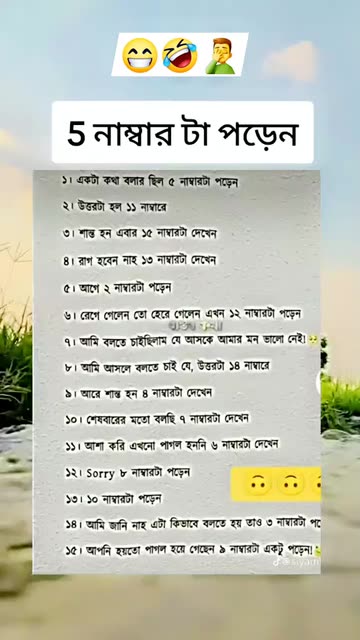 5 নাম্বার টা পড়েন
১। একটা কথা বলার ছিল ৫ নাম্বারটা পড়েন
২। উত্তরটা হল ১১ নাম্বারে
৩। শান্ত হন এবার ১৫ নাম্বারটা দেখেন
৪। রাগ হবেন নাহ ১৩ নাম্বারটা দেখেন
৫। আগে ২ নাম্বারটা পড়েন
৬। রেগে গেলেন তো হেরে গেলেন এখন ১২ নাম্বারটা পড়েন
৭। আমি বলতে চাইছিলাম যে আসকে আমার মন ভালো নেই!
৮। আমি আসলে বলতে চাই যে, উত্তরটা ১৪ নাম্বারে
৯। আরে শান্ত হন ৪ নাম্বারটা দেখেন
১০। শেষবারের মতো বলছি ৭ নাম্বারটা দেখেন
১১। আশা করি এখনো পাগল হননি ৬ নাম্বারটা দেখেন
১২। Sorry ৮ নাম্বারটা পড়েন
১৩। ১০ নাম্বারটা পড়েন
১৪। আমি জানি নাহ এটা কিভাবে বলতে হয় তাও ৩ নাম্বারটা
১৫। আপনি হয়তো পাগল হয়ে গেছেন ৯ নাম্বারটা একটু পড়েন!